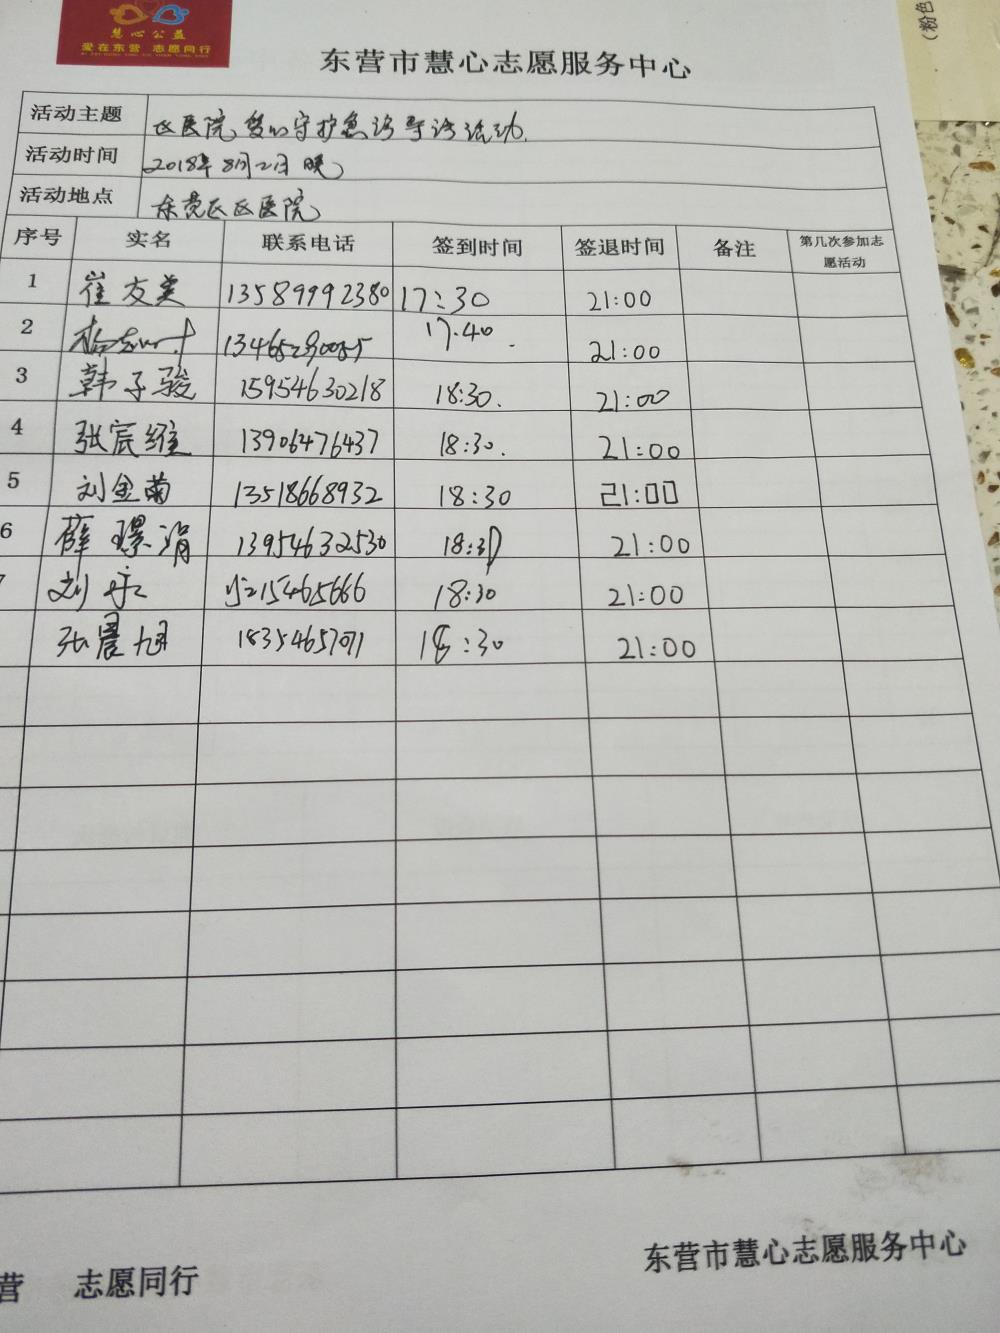 慧心公益
爱在东营 志愿同行
(粉色
东营市慧心志愿服务中心
活动主题 区医院 爱心守护急诊导诊活动.
活动时间 2018年8月21日 晚
活动地点 东营区区医院
序号 实名 联系电话 签到时间 签退时间 备注 第几次参加志愿活动
1 崔友美 13589992380 17:30 21:00
2 17.40 21:00
3 韩子骏 15954630218 18:30. 21:00
4 张宸维 13906476437 18:30. 21:00
5 刘金菊 13518668932 18:30 21:00
6 薛璟涓 13954632530 18:30 21:00
刘永 15215465666 18:30 21:00
张晨旭 18354657071 18:30 21:00
营 志愿同行
东营市慧心志愿服务中心